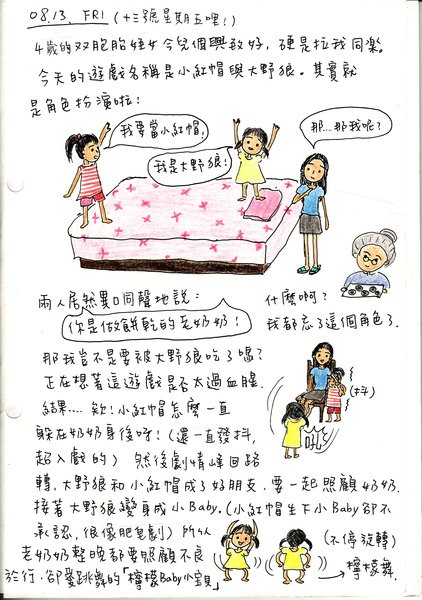 08.13. FRI (十三號星期五哩!)
4歲的双胞胎姪女今兒個興致好,硬是拉我同樂。
今天的遊戲名稱是小紅帽與大野狼。其實就
是角色扮演啦!
我要當小紅帽,
我是大野狼!
那...那我呢?
兩人居然異口同聲地說:
你是做餅乾的老奶奶!
什麼啊?
我都忘了這個角色了.
那我豈不是要被大野狼吃了嗎?
正在想著這遊戲是否太過血腥.
結果....欸!小紅帽怎麼一直
躲在奶奶身後呀!(還一直發抖,
超入戲的) 然後劇情峰回路
(抖)
吼!
轉.大野狼和小紅帽成了好朋友.要一起照顧奶奶.
接著大野狼變身成小Baby.(小紅帽生下小Baby卻不
承認.很像肥皂劇) 所以
老奶奶整晚都要照顧不良
於行.卻愛跳舞的「檸檬Baby小寶」
(不停旋轉)
檸檬舞.